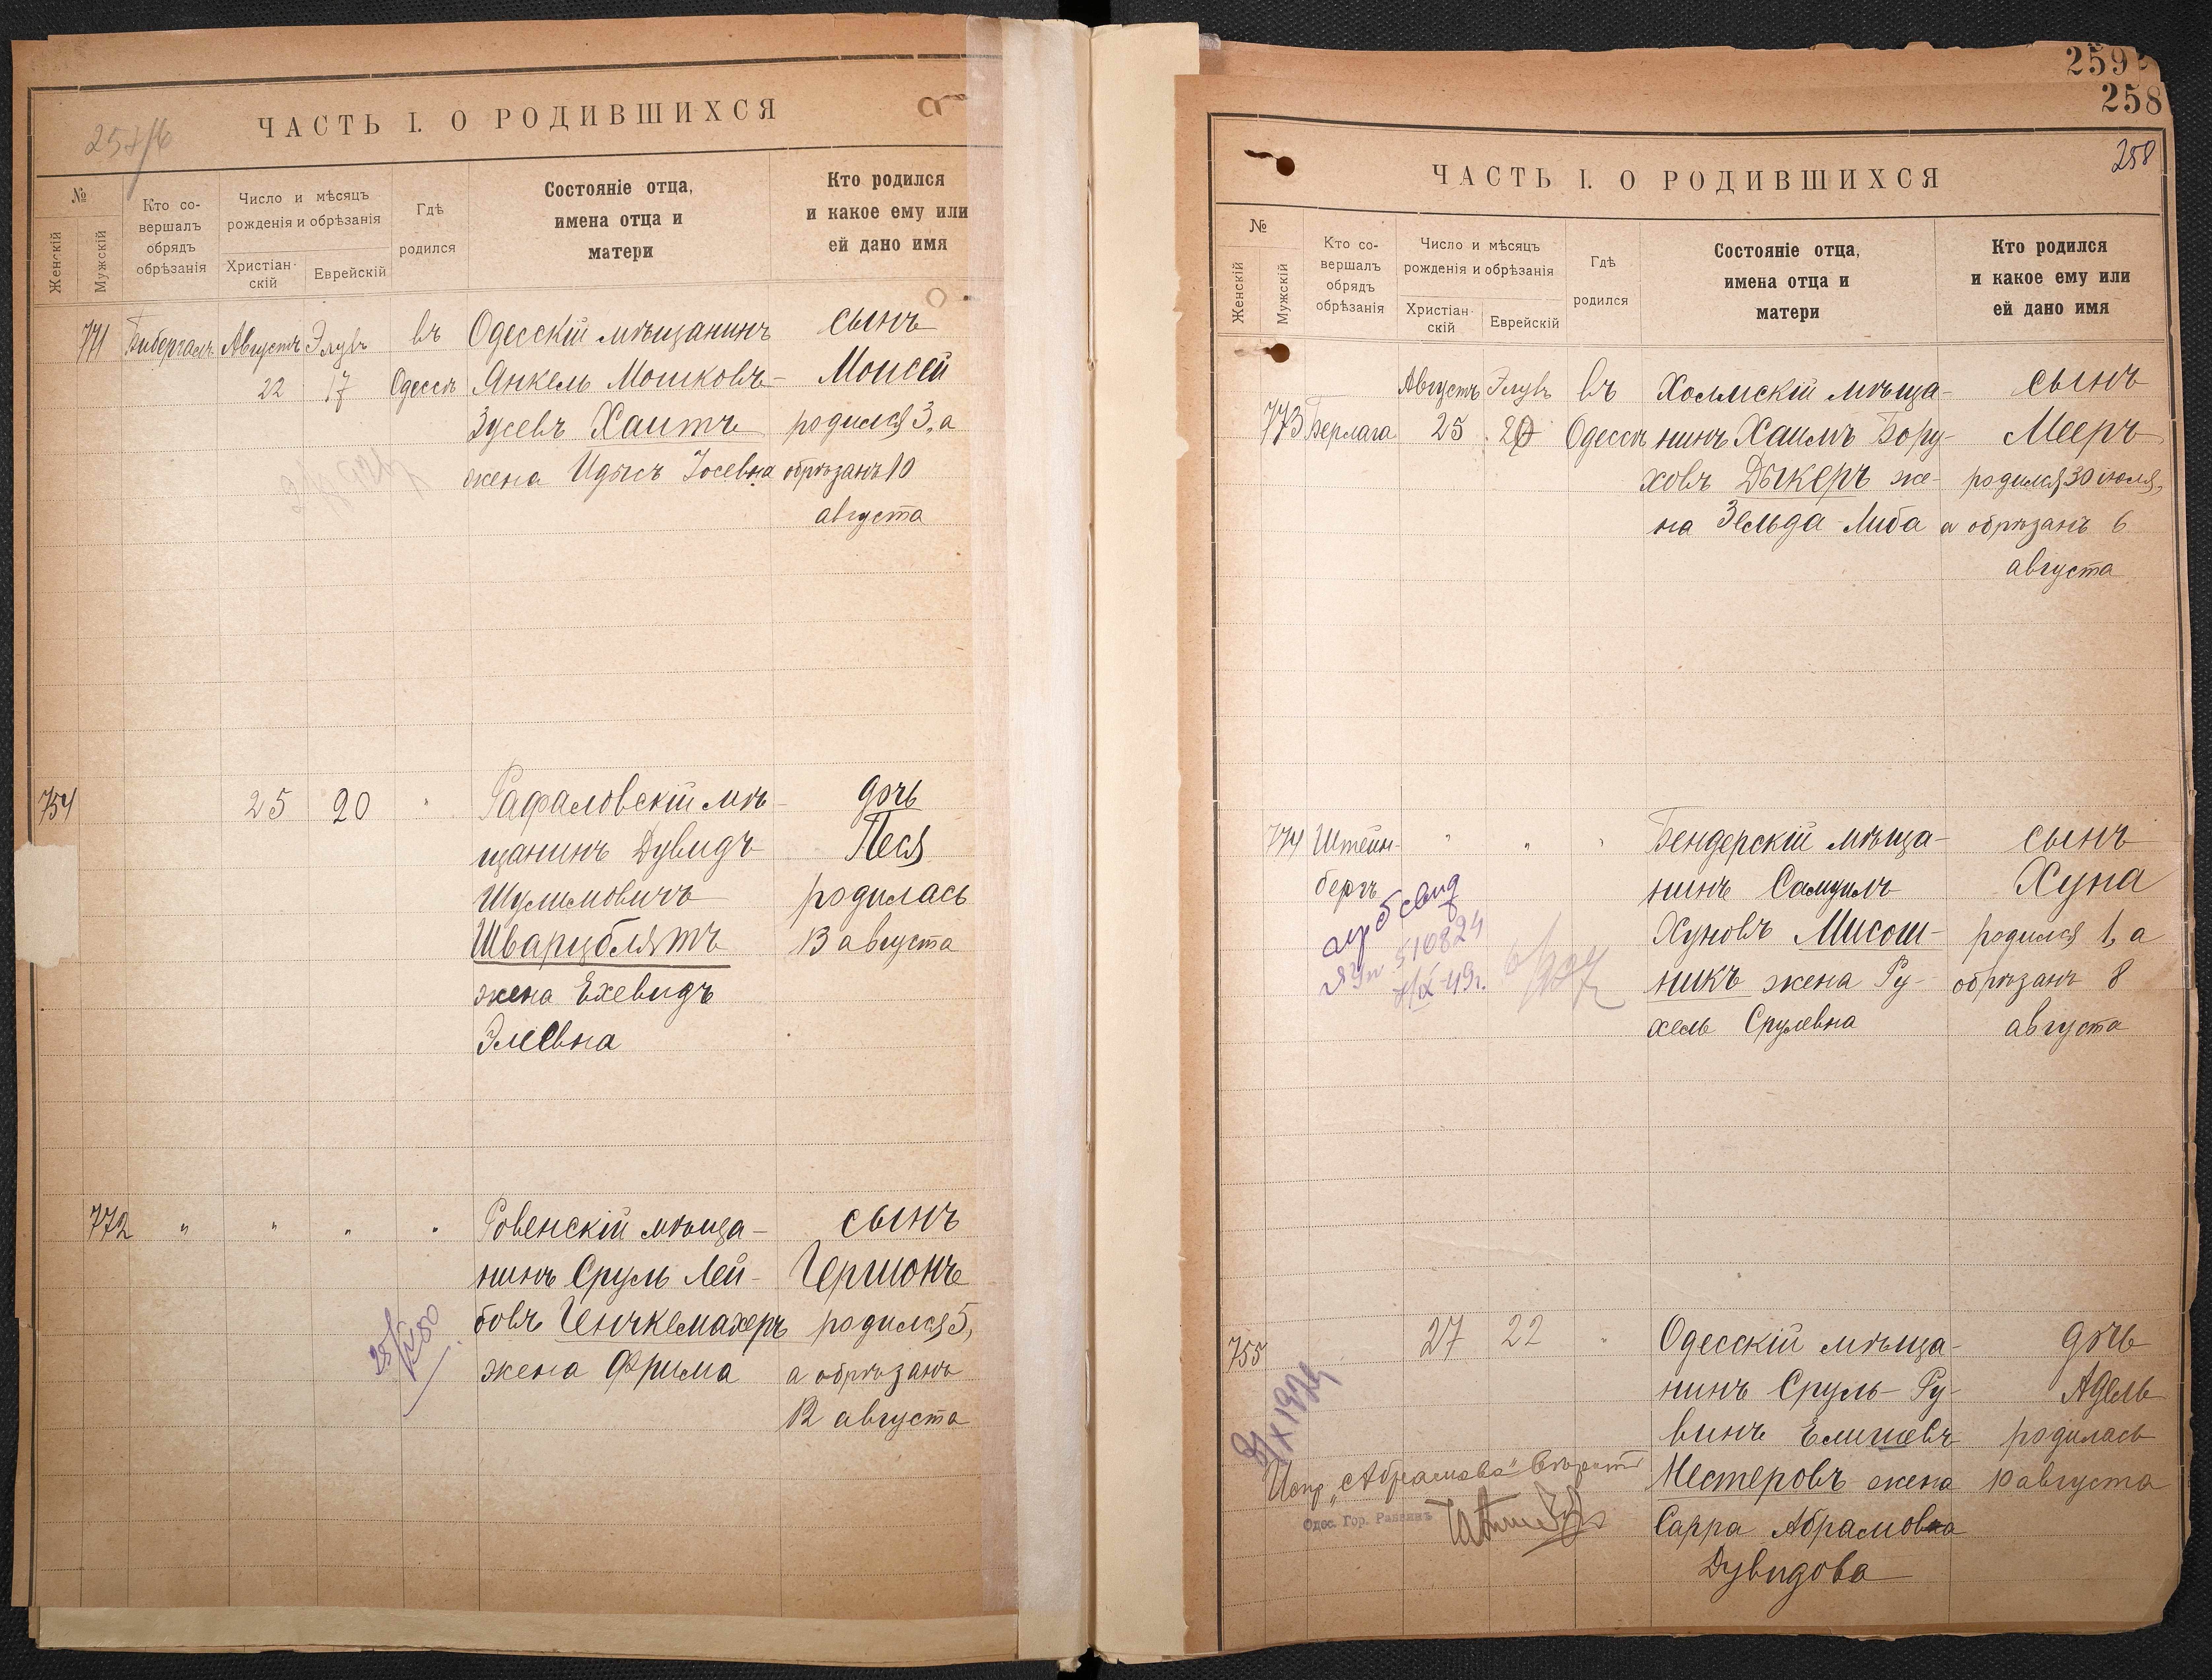 ЧАСТЬ I. О РОДИВШИХСЯ
№
Женскій
Мужскій
Кто со-
вершалъ
обрядъ
обрѣзанія
Число и мѣсяцъ
рожденія и обрѣзанія
Христіан-
скій
Еврейскій
Гдѣ
родился
Состояніе отца,
имена отца и
матери
Кто родился
и какое ему или
ей дано имя
771
Августъ
22
Элулъ
17
въ
Одессѣ
Одесскій мѣщанинъ
Янкель Мошковъ-
Зусевъ Хаитъ
жена Идысъ Іосевна
сынъ
Моисей
родился 3, а
обрѣзанъ 10
августа
754
25
20
"
Рафаловскій мѣ-
щанинъ Дувидъ
Шулимовичъ
Шварцблятъ
жена Ехевидъ
Элевна
дочь
Песя
родилась
13 августа
772
"
"
"
"
Ровенскій мѣща-
нинъ Сруль Лей-
бовъ Генчкемахеръ
жена Фрима
сынъ
Гершонъ
родился 5,
а обрѣзанъ
12 августа
259
258
258
ЧАСТЬ I. О РОДИВШИХСЯ
№
Женскій
Мужскій
Кто со-
вершалъ
обрядъ
обрѣзанія
Число и мѣсяцъ
рожденія и обрѣзанія
Христіан-
скій
Еврейскій
Гдѣ
родился
Состояніе отца,
имена отца и
матери
Кто родился
и какое ему или
ей дано имя
773
Берлага
Августъ
25
Элулъ
20
въ
Одессѣ
Холмскій мѣща-
нинъ Хаимъ Бору-
ховъ Дыкеръ же-
на Зельда Либа
сынъ
Мееръ
родился 30 іюля,
а обрѣзанъ 6
августа
774
Штейн-
бергъ
"
"
"
Бендерскій мѣща-
нинъ Самуилъ
Хуновъ Мисош-
никъ жена Ру-
хель Срулевна
сынъ
Хуна
родился 1, а
обрѣзанъ 8
августа
510824
755
27
22
"
Одесскій мѣща-
нинъ Сруль-Ру-
винъ Елишевъ
Нестеровъ жена
Сарра Абрамовна
Дувидова
дочь
Адель
родилась
10 августа
X 1924
Испр. „Абрамова" вѣрить
Одес. Гор. Раввинъ